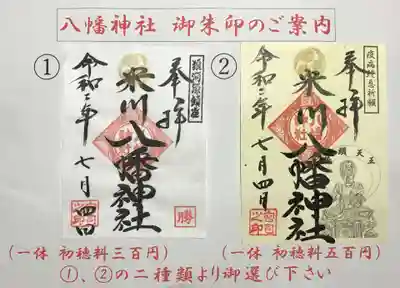 八幡神社 御朱印のご案内
①
奉拝
米川八幡神社
令和二年七月四日
勝
②
疫病終息祈願
奉拝
米川八幡神社
令和二年七月四日
宮司之印
(一体 初穂料三百円)
(一体 初穂料五百円)
①、②の二種類より御選び下さい